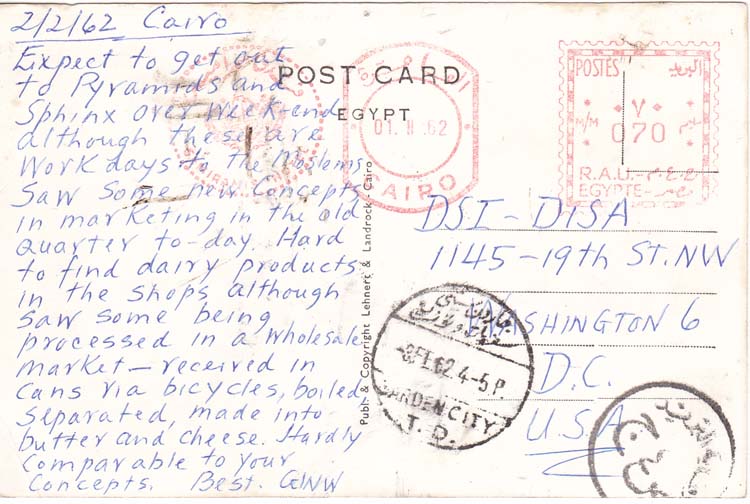 2/2/62 Cairo
Expect to get out
to Pyramids and
Sphinx over week-end
although these are
work days to the Moslems.
Saw some new Concepts
in marketing in the old
quarter to-day. Hard
to find dairy products
in the shops although
saw some being
processed in a wholesale
market — received in
cans via bicycles, boiled,
separated, made into
butter and cheese. Hardly
comparable to your
Concepts. Best. GWW
POST CARD
EGYPT
Publ. & Copyright Lehnert & Landrock, Cairo
01. II .62
CAIRO
POSTES البريد
٧٠
M/M 070 مليم
R.A.U. ج.ع.م
EGYPTE مصر
DSI-DISA
1145-19th ST. NW
WASHINGTON 6
D.C.
U.S.A
جاردن سيتي
FE 62 4-5 P.
GARDEN CITY
T. D.